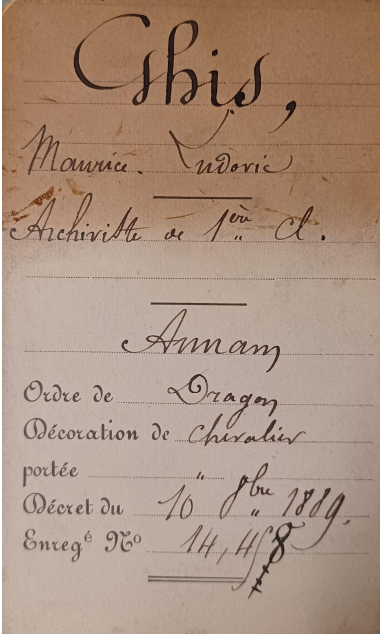 Ghis,
Maurice. Ludovic
Archiviste de 1ère cl.
Annam
Ordre de Dragon
Décoration de chevalier
portée "
Décret du 10 8bre 1889.
Enregé No 14,458